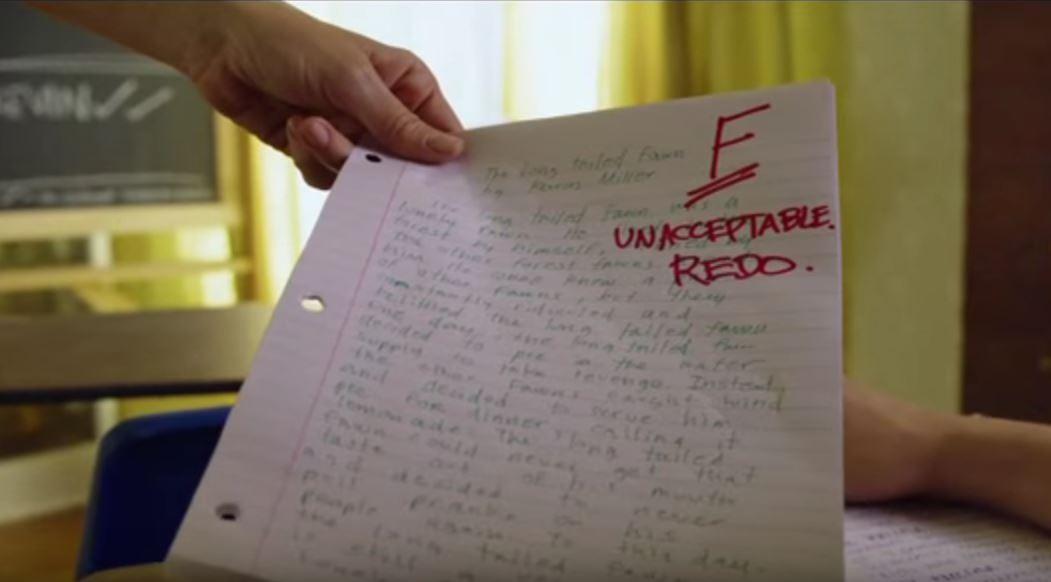 The long tailed fawn
by Miller
F
UNACCEPTABLE.
REDO.
The long tailed fawn was a
lonely fawn. He
forest by himself,
The other forest fawns
him. He once knew a
of other fawns, but they
constantly ridiculed and
belittled the long tailed fawn
one day, the long tailed
decided to pee in the water
supply to take revenge. Instead,
the other fawns caught wind
and decided to serve him
pee for dinner, calling it
lemonade. The long tailed
fawn could never get that
taste out of his mouth
and decided to never
pull pranks on his
people again. To this day,
the long tailed
is still a